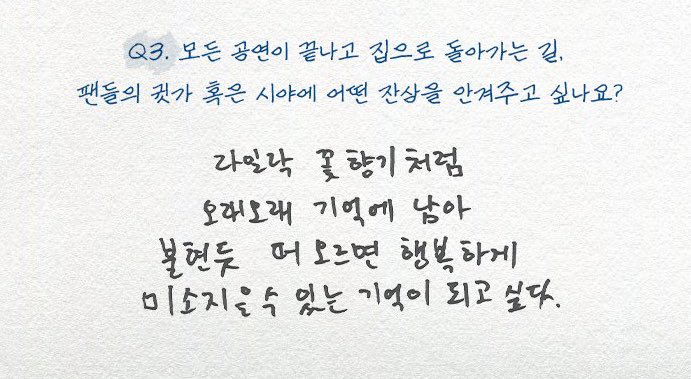 Q3. 모든 공연이 끝나고 집으로 돌아가는 길,
팬들의 귓가 혹은 시야에 어떤 잔상을 안겨주고 싶나요?
라일락 꽃 향기처럼
오래오래 기억에 남아
불현듯 떠오르면 행복하게
미소지을 수 있는 기억이 되고 싶다.